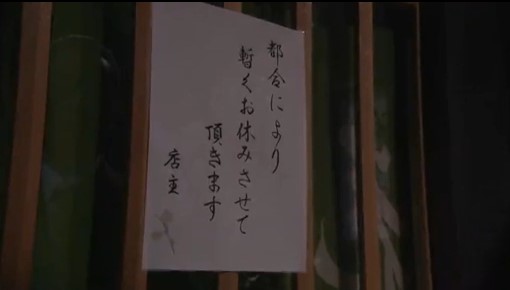 都合により
暫くお休みさせて
頂きます
店主